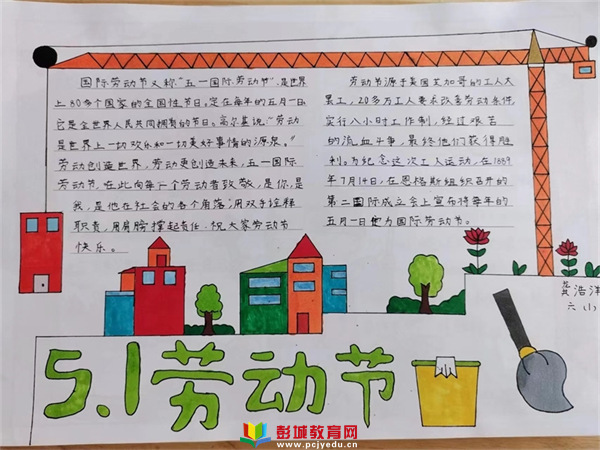 国际劳动节又称"五一国际劳动节",是世界
上80多个国家的全国性节日。定在每年的五月一日
它是全世界人民共同拥有的节日。高尔基说:"劳动
是世界上一切欢乐和一切美好事情的源泉。"
劳动创造世界,劳动更创造未来,五一国际
劳动节,在此向每一个劳动者致敬,是你,是
我,是他在社会的各个角落;用双手诠释
职责,用肩膀撑起责任.祝大家劳动节
快乐。
劳动节源于美国芝加哥的工人大
罢工,20多万工人要求改善劳动条件,
实行八小时工作制,经过艰苦
的流血斗争,最终他们获得胜
利。为纪念这次工人运动,在1889
年7月14日,在恩格斯组织召开的
第二国际成立会上宣布将每年的
五月一日定为国际劳动节。
龚浩洋
六(1)
5.1劳动节
彭城教育网
www.pcjyedu.cn